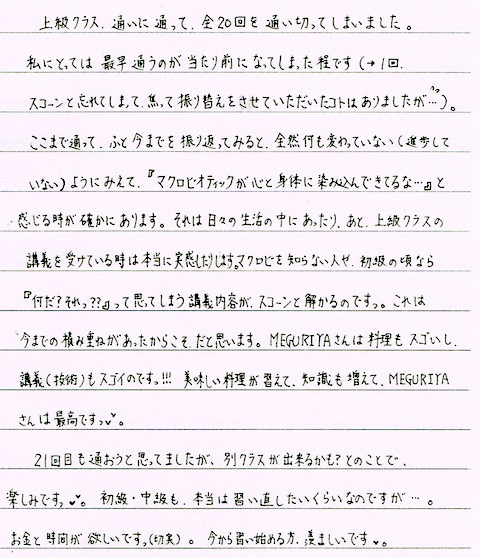 上級クラス、通いに通って、全20回を通い切ってしまいました。
私にとっては最早通うのが当たり前になってしまった程です(→1回、
スコーンと忘れてしまって、焦って振り替えをさせていただいたコトはありましたが…)。
ここまで通って、ふと今までを振り返ってみると、全然何も変わっていない(進歩して
いない)ようにみえて、『マクロビオティックが心と身体に染み込んできてるな…』と
感じる時が確かにあります。それは日々の生活の中にあったり、あと、上級クラスの
講義を受けている時は本当に実感したりします。マクロビを知らない人や、初級の頃なら
『何だ?それっ??』って思ってしまう講義内容が、スコーンと解かるのですっ。これは
今までの積み重ねがあったからこそだと思います。MEGURIYAさんは料理もスゴいし、
講義(技術)もスゴイのですっ!!! 美味しい料理が習えて、知識も増えて、MEGURIYA
さんは最高ですっ♥。
21回目も通おうと思ってましたが、別クラスが出来るかも?とのことで、
楽しみですっ♥♥。初級・中級も、本当は習い直したいくらいなのですが…。
お金と時間が欲しいですっ(切実)。今から習い始める方、羨ましいです♥。